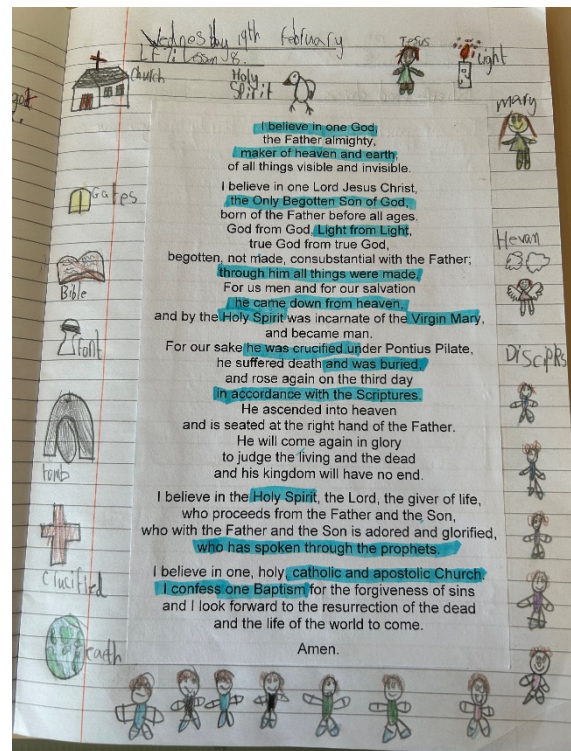 Wednesday 19th February
LF7: Lesson 8.
Jesus
Light
Church
Holy
Spirit
Mary
I believe in one God,
the Father almighty,
maker of heaven and earth,
of all things visible and invisible.
I believe in one Lord Jesus Christ,
the Only Begotten Son of God,
born of the Father before all ages.
God from God, Light from Light,
true God from true God,
begotten, not made, consubstantial with the Father;
through him all things were made.
For us men and for our salvation
he came down from heaven,
and by the Holy Spirit was incarnate of the Virgin Mary,
and became man.
For our sake he was crucified under Pontius Pilate,
he suffered death and was buried,
and rose again on the third day
in accordance with the Scriptures.
He ascended into heaven
and is seated at the right hand of the Father.
He will come again in glory
to judge the living and the dead
and his kingdom will have no end.
I believe in the Holy Spirit, the Lord, the giver of life,
who proceeds from the Father and the Son,
who with the Father and the Son is adored and glorified,
who has spoken through the prophets.
I believe in one, holy, catholic and apostolic Church.
I confess one Baptism for the forgiveness of sins
and I look forward to the resurrection of the dead
and the life of the world to come.
Amen.
Gates
Bible
font
tomb
Crucified
earth
Hevan